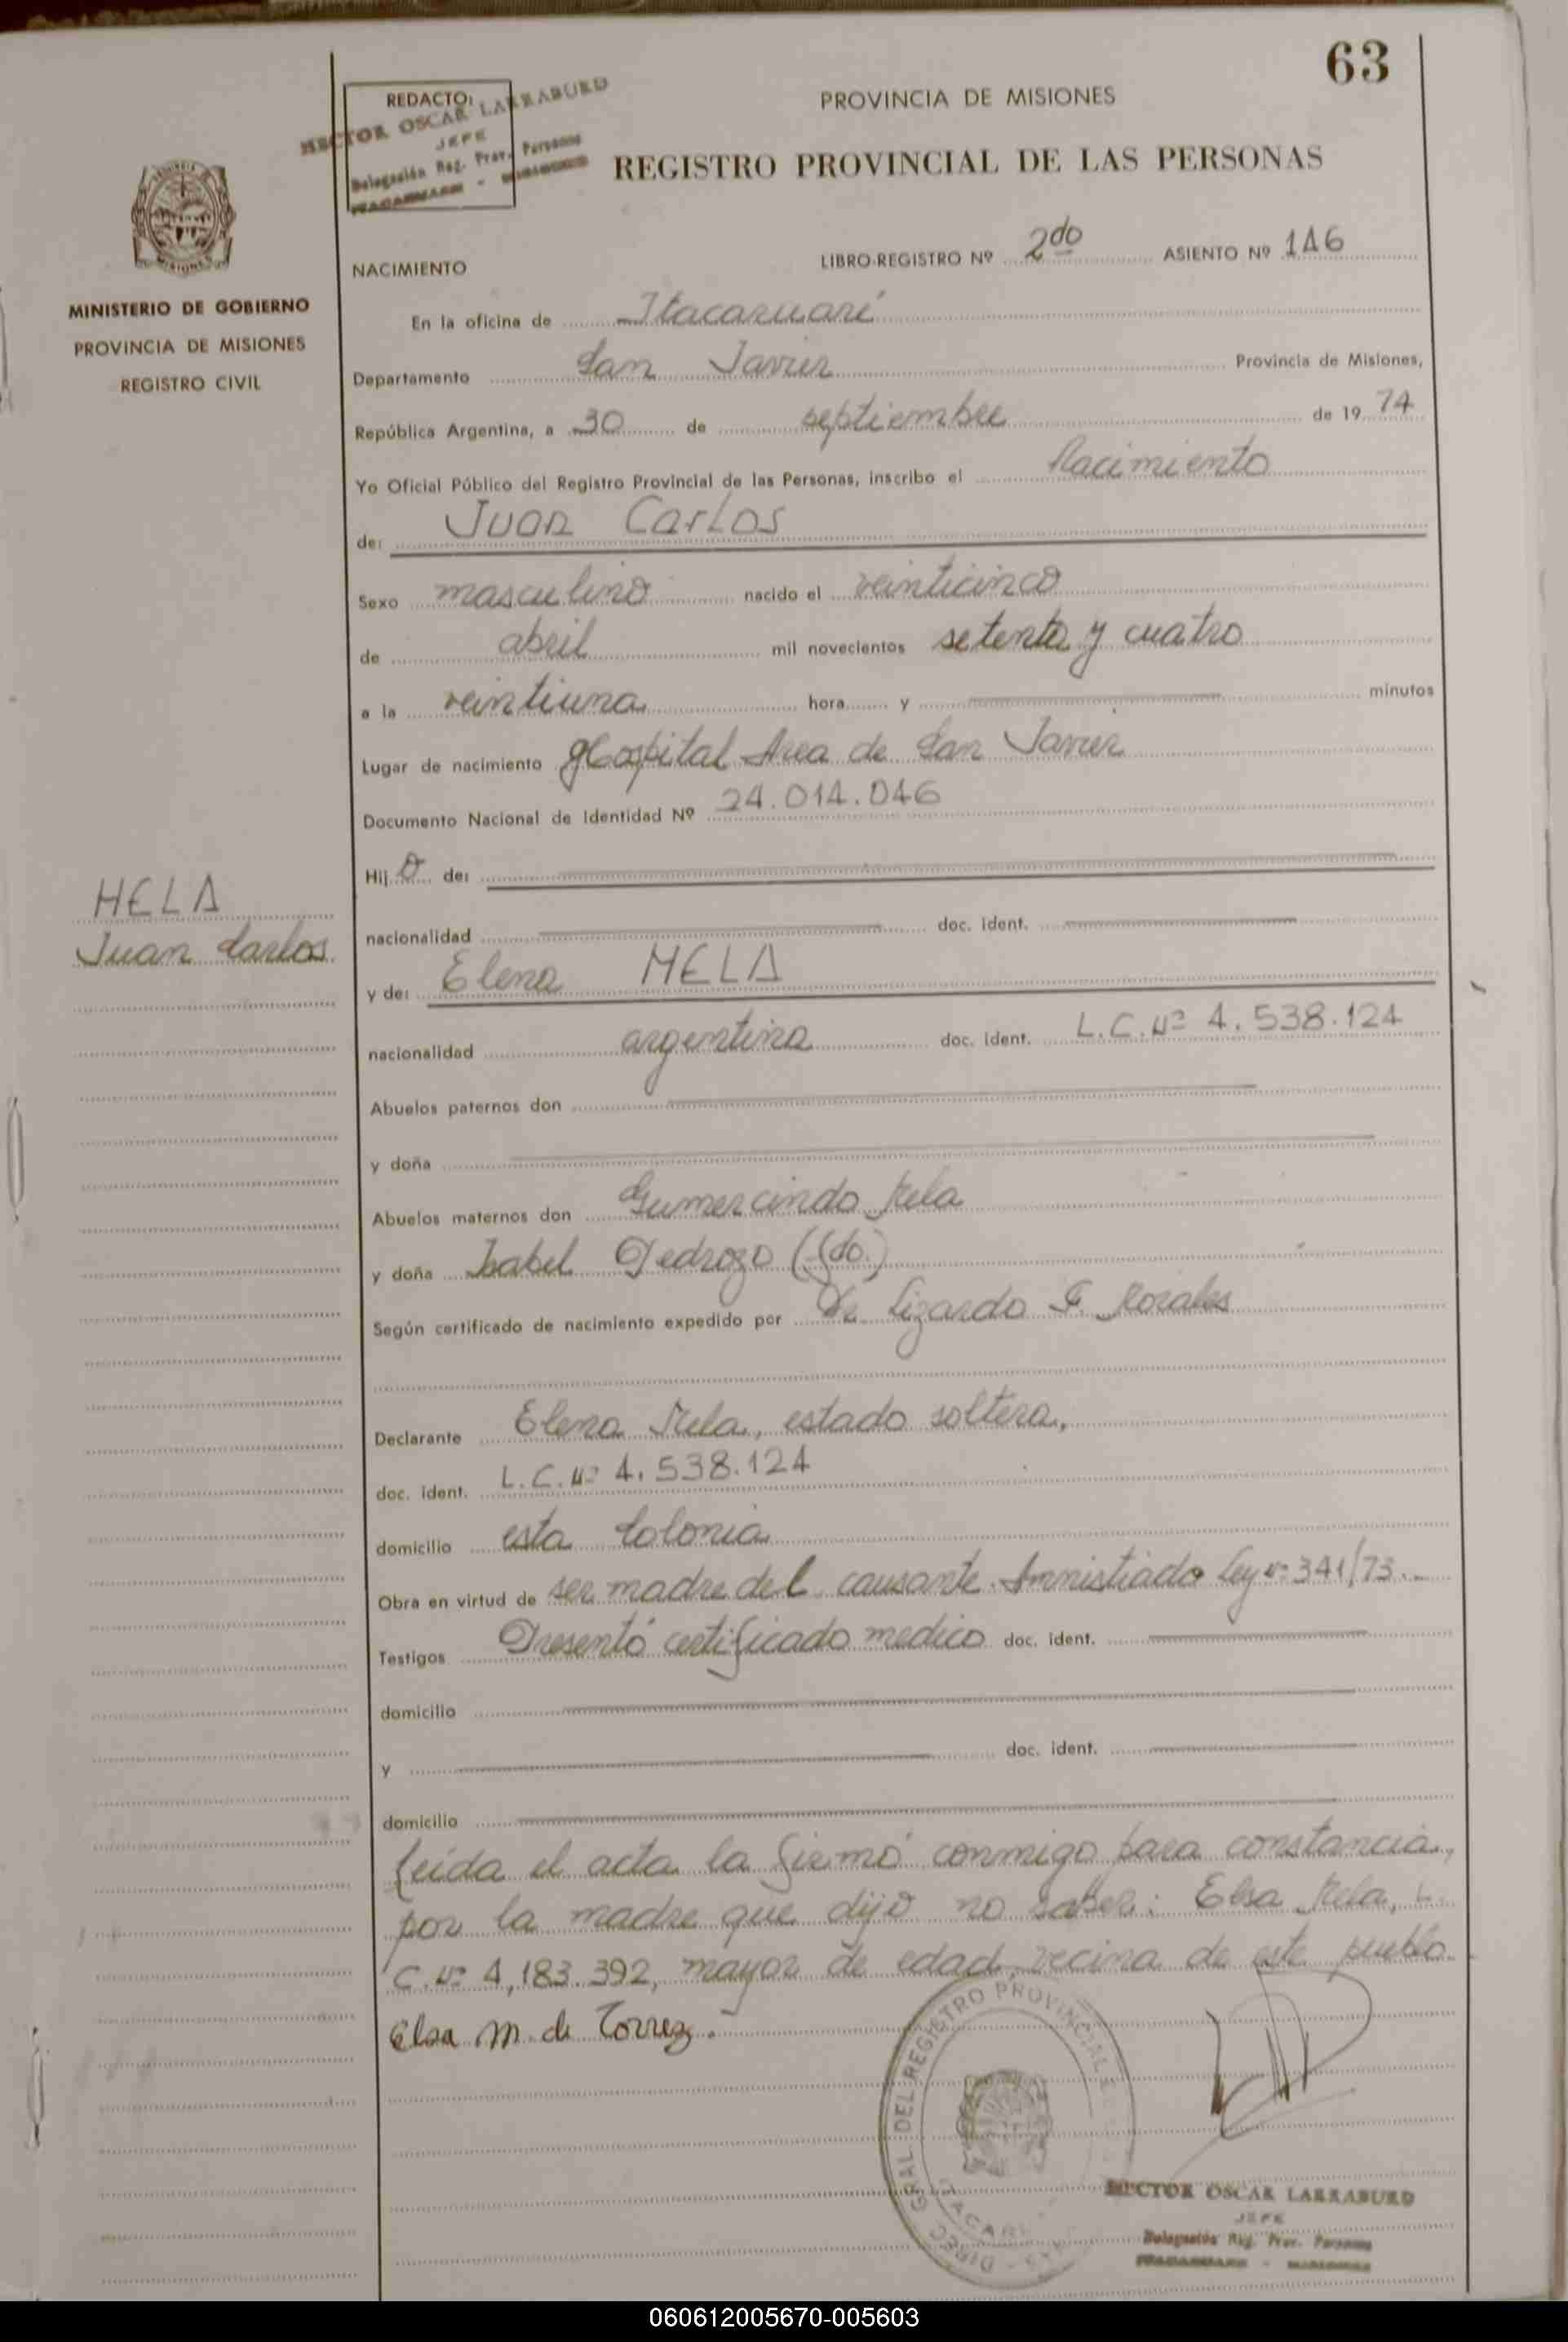 63
REDACTO:
HECTOR OSCAR LARRABURD
JEFE
Delegación Reg. Prov. Personas
ITACARUARE - MISIONES
PROVINCIA DE MISIONES
REGISTRO PROVINCIAL DE LAS PERSONAS
MISIONES
MINISTERIO DE GOBIERNO
PROVINCIA DE MISIONES
REGISTRO CIVIL
NACIMIENTO
LIBRO-REGISTRO Nº 2do ASIENTO Nº 146
En la oficina de Itacaruaré
Departamento San Javier Provincia de Misiones,
República Argentina, a 30 de septiembre de 1974
Yo Oficial Público del Registro Provincial de las Personas, inscribo el Nacimiento
de: Juan Carlos
Sexo masculino nacido el veinticinco
de abril mil novecientos setenta y cuatro
a la veintiuna hora y minutos
Lugar de nacimiento Hospital Area de San Javier
Documento Nacional de Identidad Nº 24.014.046
Hijo de:
nacionalidad doc. ident.
HELA
Juan Carlos
y de: Elena HELA
nacionalidad argentina doc. ident. L.C.Nº 4.538.124
Abuelos paternos don
y doña
Abuelos maternos don Gumercindo Hela
y doña Isabel Pedrozo (fdo.)
Según certificado de nacimiento expedido por Dr. Lizardo F. Rosales
Declarante Elena Hela, estado soltera,
doc. ident. L.C.Nº 4.538.124
domicilio esta Colonia
Obra en virtud de ser madre del causante. Amnistiado Ley nº 341/73.-
Testigos Presentó certificado medico doc. ident.
domicilio
y doc. ident.
domicilio
Leída el acta la firmó conmigo para constancia,
por la madre que dijo no saber: Elsa Hela, L.
C.Nº 4,183.392, mayor de edad, vecina de este pueblo.
Elsa M. de Torrez.
DIREC. GRAL. DEL REGISTRO PROVINCIAL
HECTOR OSCAR LARRABURD
JEFE
Delegación Reg. Prov. Personas
ITACARUARE - MISIONES
060612005670-005603